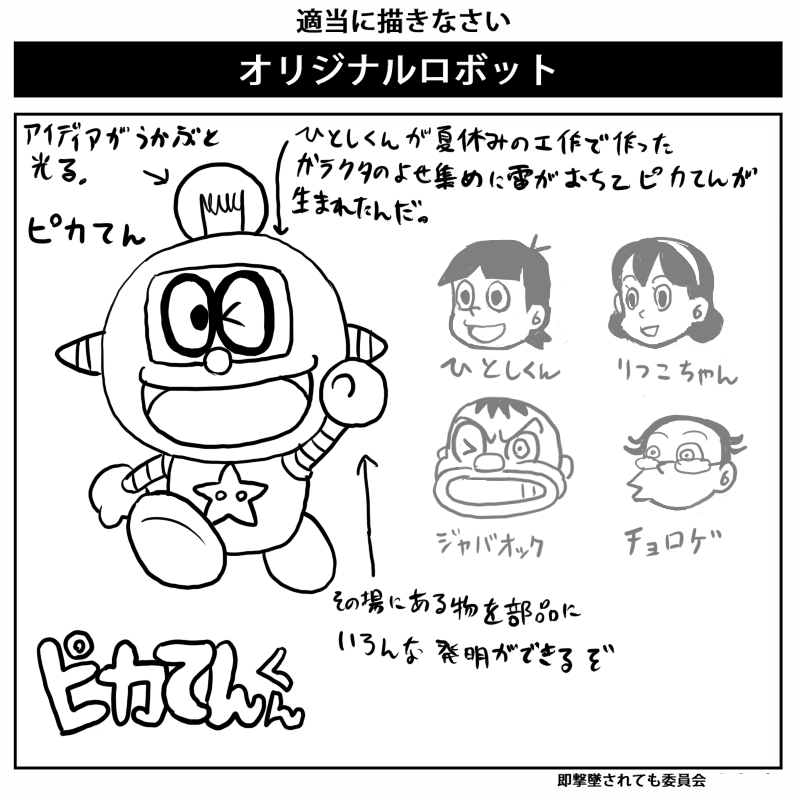 適当に描きなさい
オリジナルロボット
アイディアがうかぶと
光る。
ひとしくんが夏休みの工作で作った
ガラクタのよせ集めに雷がおちてピカてんが
生まれたんだ。
ピカてん
ひとしくん
りつこちゃん
ジャバオック
チョロゲ
その場にある物を部品に
いろんな発明ができるぞ
ピカてんくん
即撃墜されても委員会